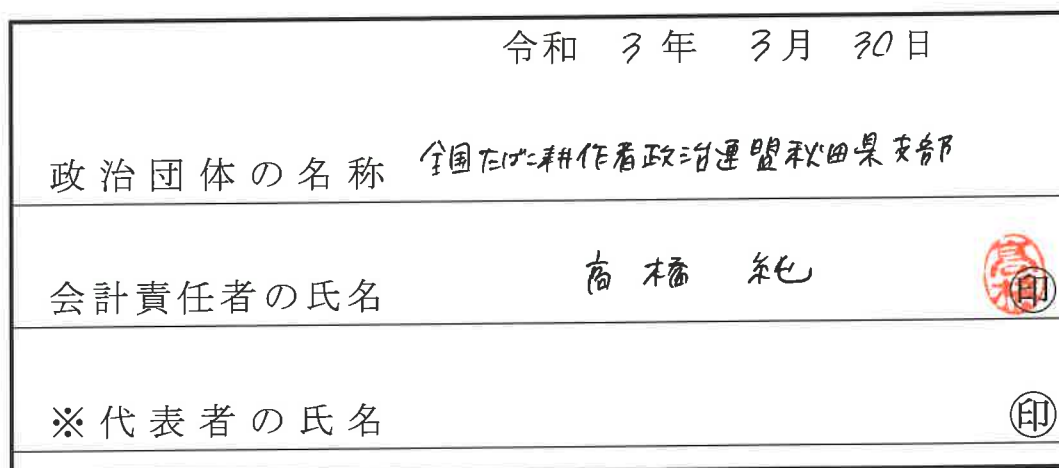 令和 3年 3月 30日
政治団体の名称 全国たばこ耕作者政治連盟秋田県支部
会計責任者の氏名 高橋 純 高橋 印
※代表者の氏名 印